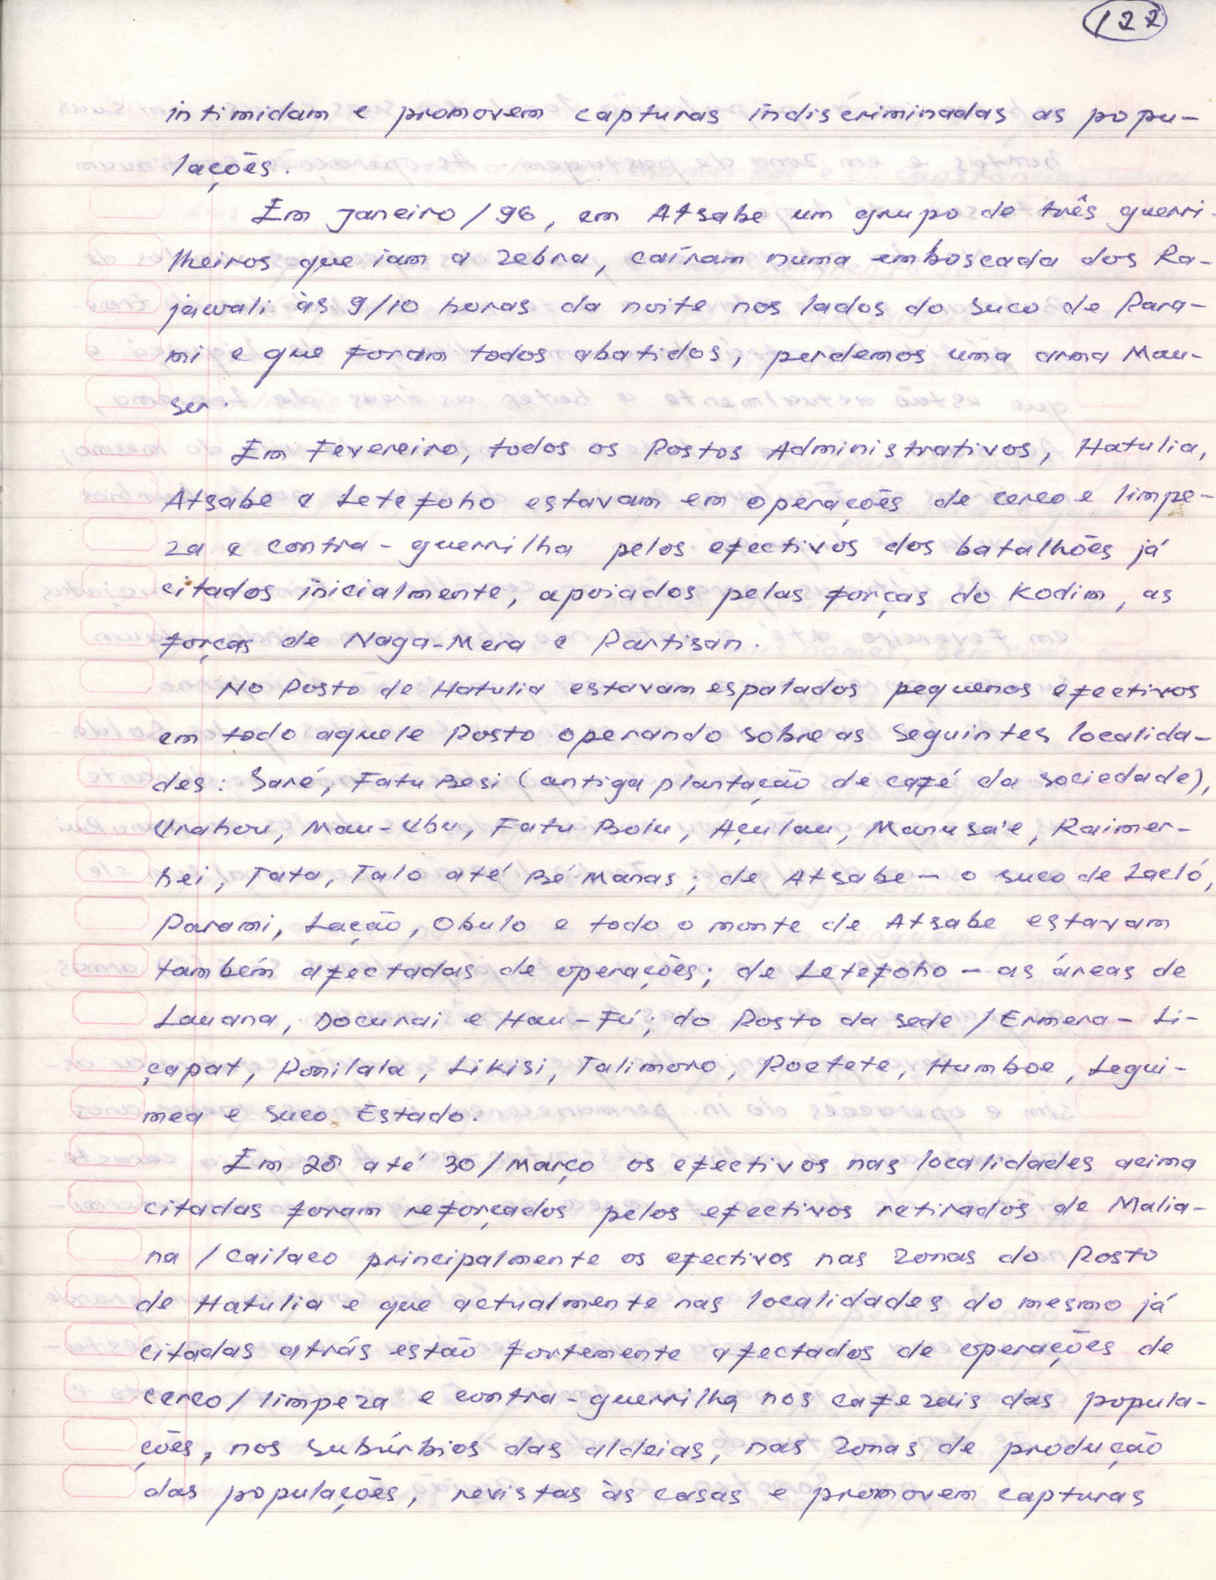 122
intimidam e promovem capturas indiscriminadas as popu-
lações.
Em Janeiro/96, em Atsabe um grupo de três guerri-
lheiros que iam a Zebra, caíram numa emboscada dos Ra-
jawali às 9/10 horas da noite nos lados do suco de Para-
mi e que foram todos abatidos, perdemos uma arma Mau-
ser.
Em Fevereiro, todos os Postos Administrativos, Hatulia,
Atsabe e Letefoho estavam em operações de cerco e limpe-
za e contra-guerrilha pelos efectivos dos batalhões já
citados inicialmente, apoiados pelas forças do Kodim, as
forças de Naga-Mera e Partisan.
No Posto de Hatulia estavam espalados pequenos efectivos
em todo aquele Posto operando sobre as seguintes localida-
des: Saré, Fatu Besi (antiga plantação de café da sociedade),
Urahou, Mau-Ubu, Fatu Bolu, Açulau, Manusa'e, Raimer-
hei, Tata, Talo até Bé Manas; de Atsabe - o suco de Laeló,
Parami, Lação, Obulo e todo o monte de Atsabe estavam
também afectadas de operações; de Letefoho - as áreas de
Lauana, Docurai e Hau-Fú; do Posto da sede/Ermera - Li-
çapat, Ponilala, Likisi, Talimoro, Poetete, Humboe, Legui-
mea e suco Estado.
Em 28 até 30/Março os efectivos nas localidades acima
citadas foram reforçados pelos efectivos retirados de Malia-
na/Cailaco principalmente os efectivos nas zonas do Posto
de Hatulia e que actualmente nas localidades do mesmo já
citadas atrás estão fortemente afectados de operações de
cerco/limpeza e contra-guerrilha nos cafezais das popula-
ções, nos subúrbios das aldeias, nas zonas de produção
das populações, revistas às casas e promovem capturas